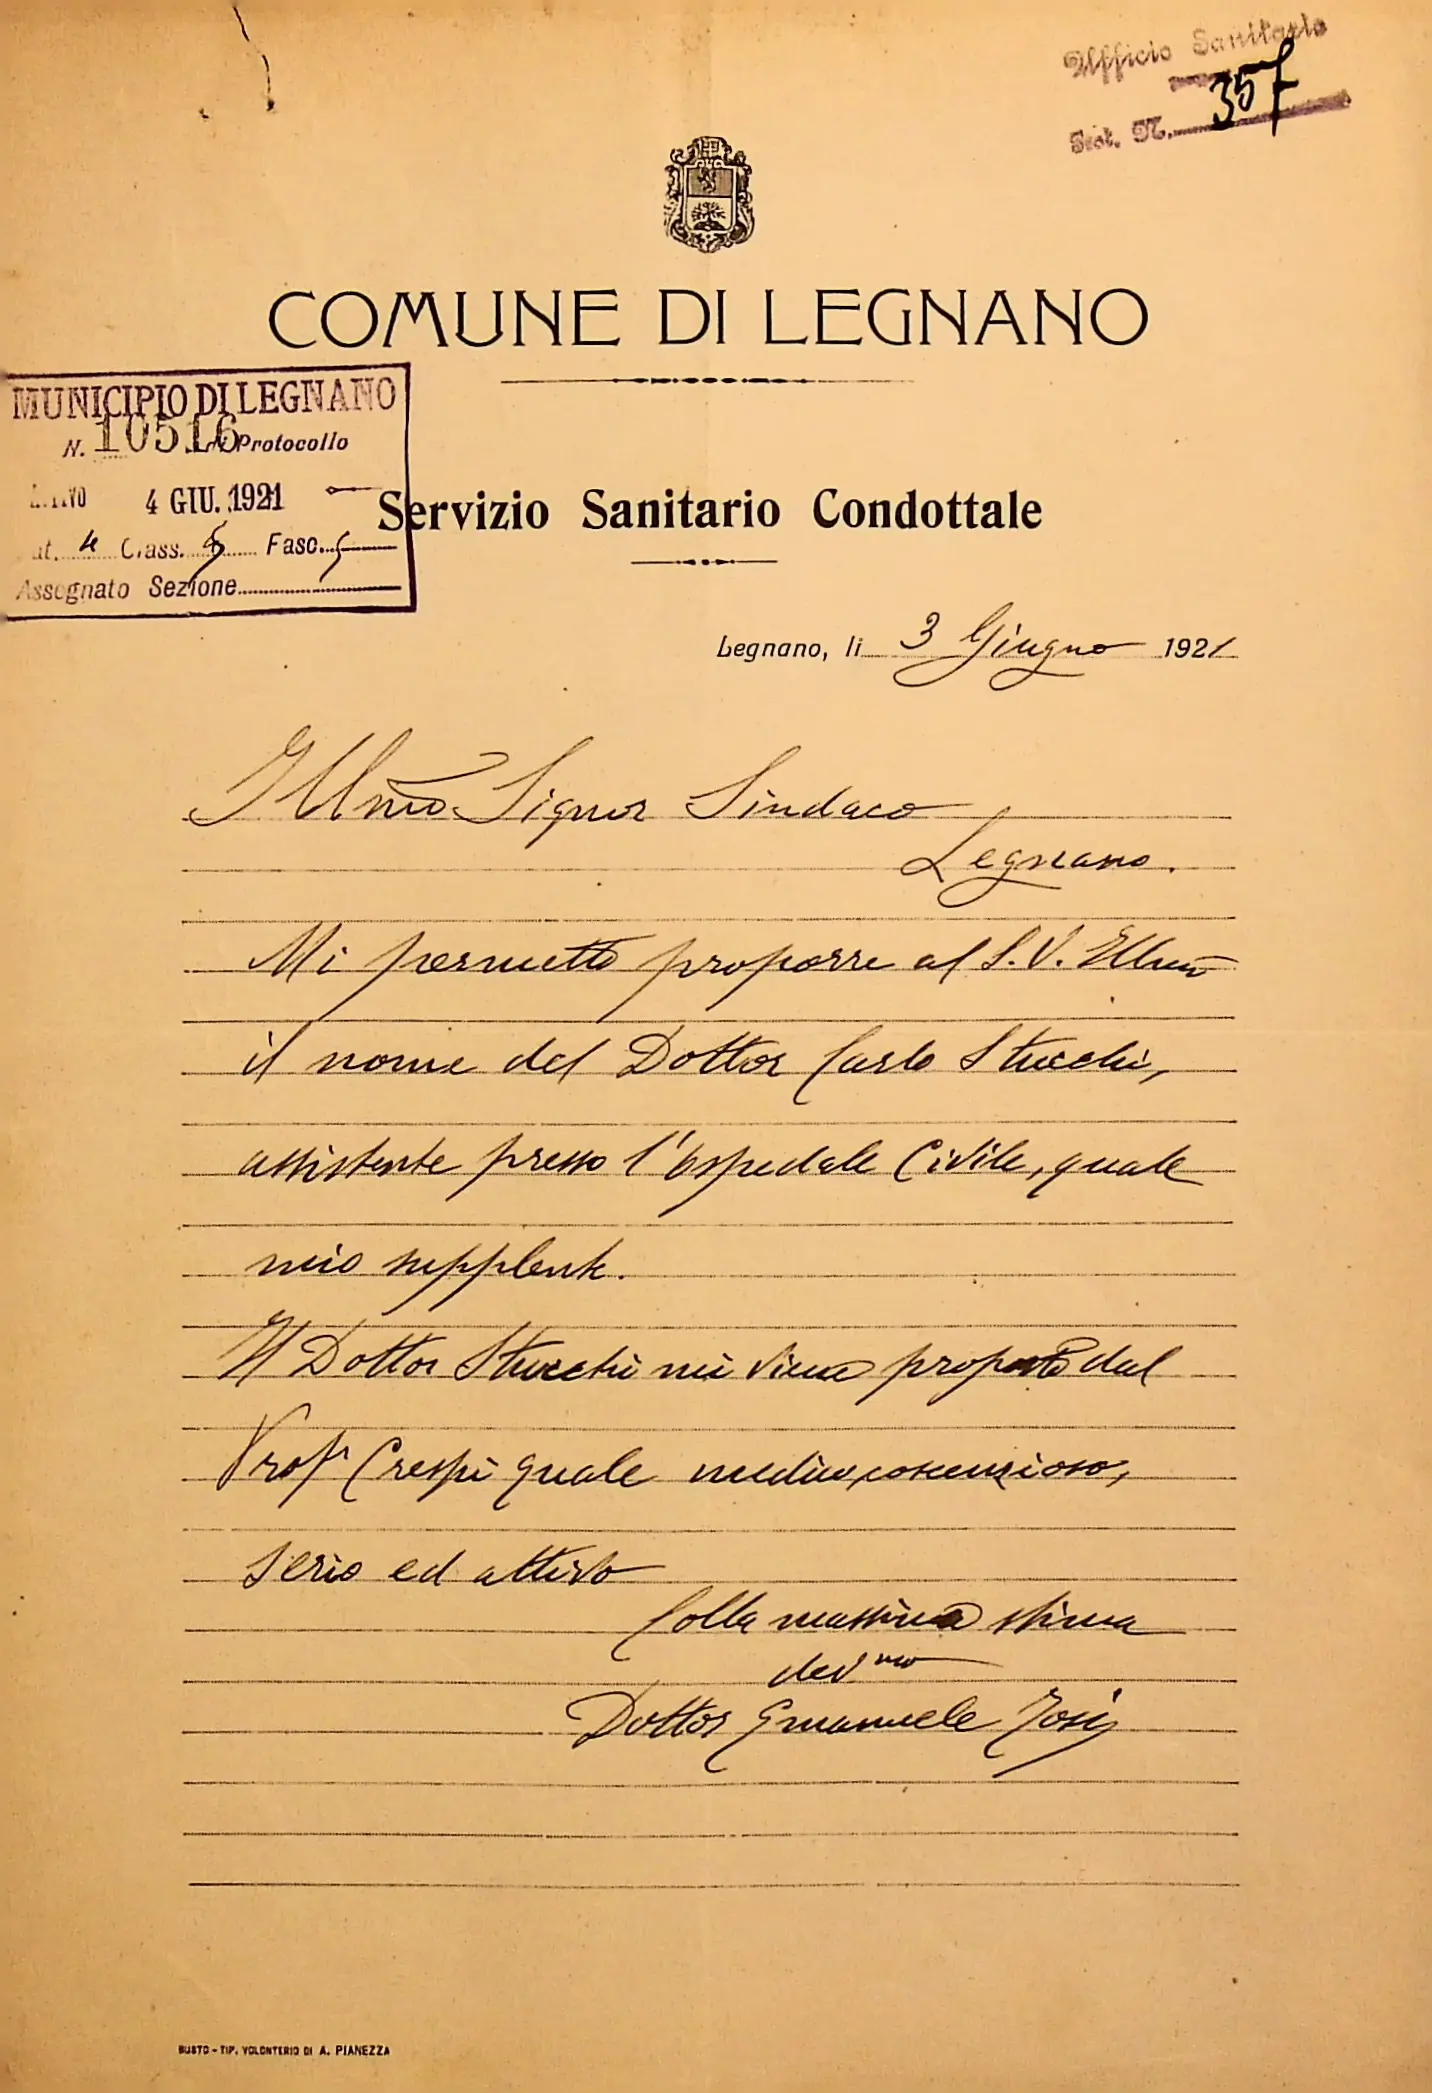 Ufficio Sanitario
Prot. N. 357
COMUNE DI LEGNANO
MUNICIPIO DI LEGNANO
N. 10516 Protocollo
4 GIU. 1921
Cat. 4 Class. 5 Fasc. 5
Assegnato Sezione
Servizio Sanitario Condottale
Legnano, li 3 Giugno 1921
Illmo Signor Sindaco
Legnano.
Mi permetto proporre al S.V. Illma
il nome del Dottor Carlo Stucchi,
assistente presso l'Ospedale Civile, quale
mio supplente.
Il Dottor Stucchi mi viene proposto dal
Prof. Crespi quale medico coscenzioso,
serio ed attivo
Colla massima stima
dev.mo
Dottor Emanuele Tosi
BUSTO - TIP. VOLONTERIO DI A. PIANEZZA